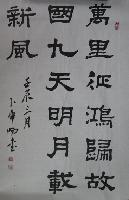 萬里征鴻歸故
國九天明月載
新風
壬辰三月